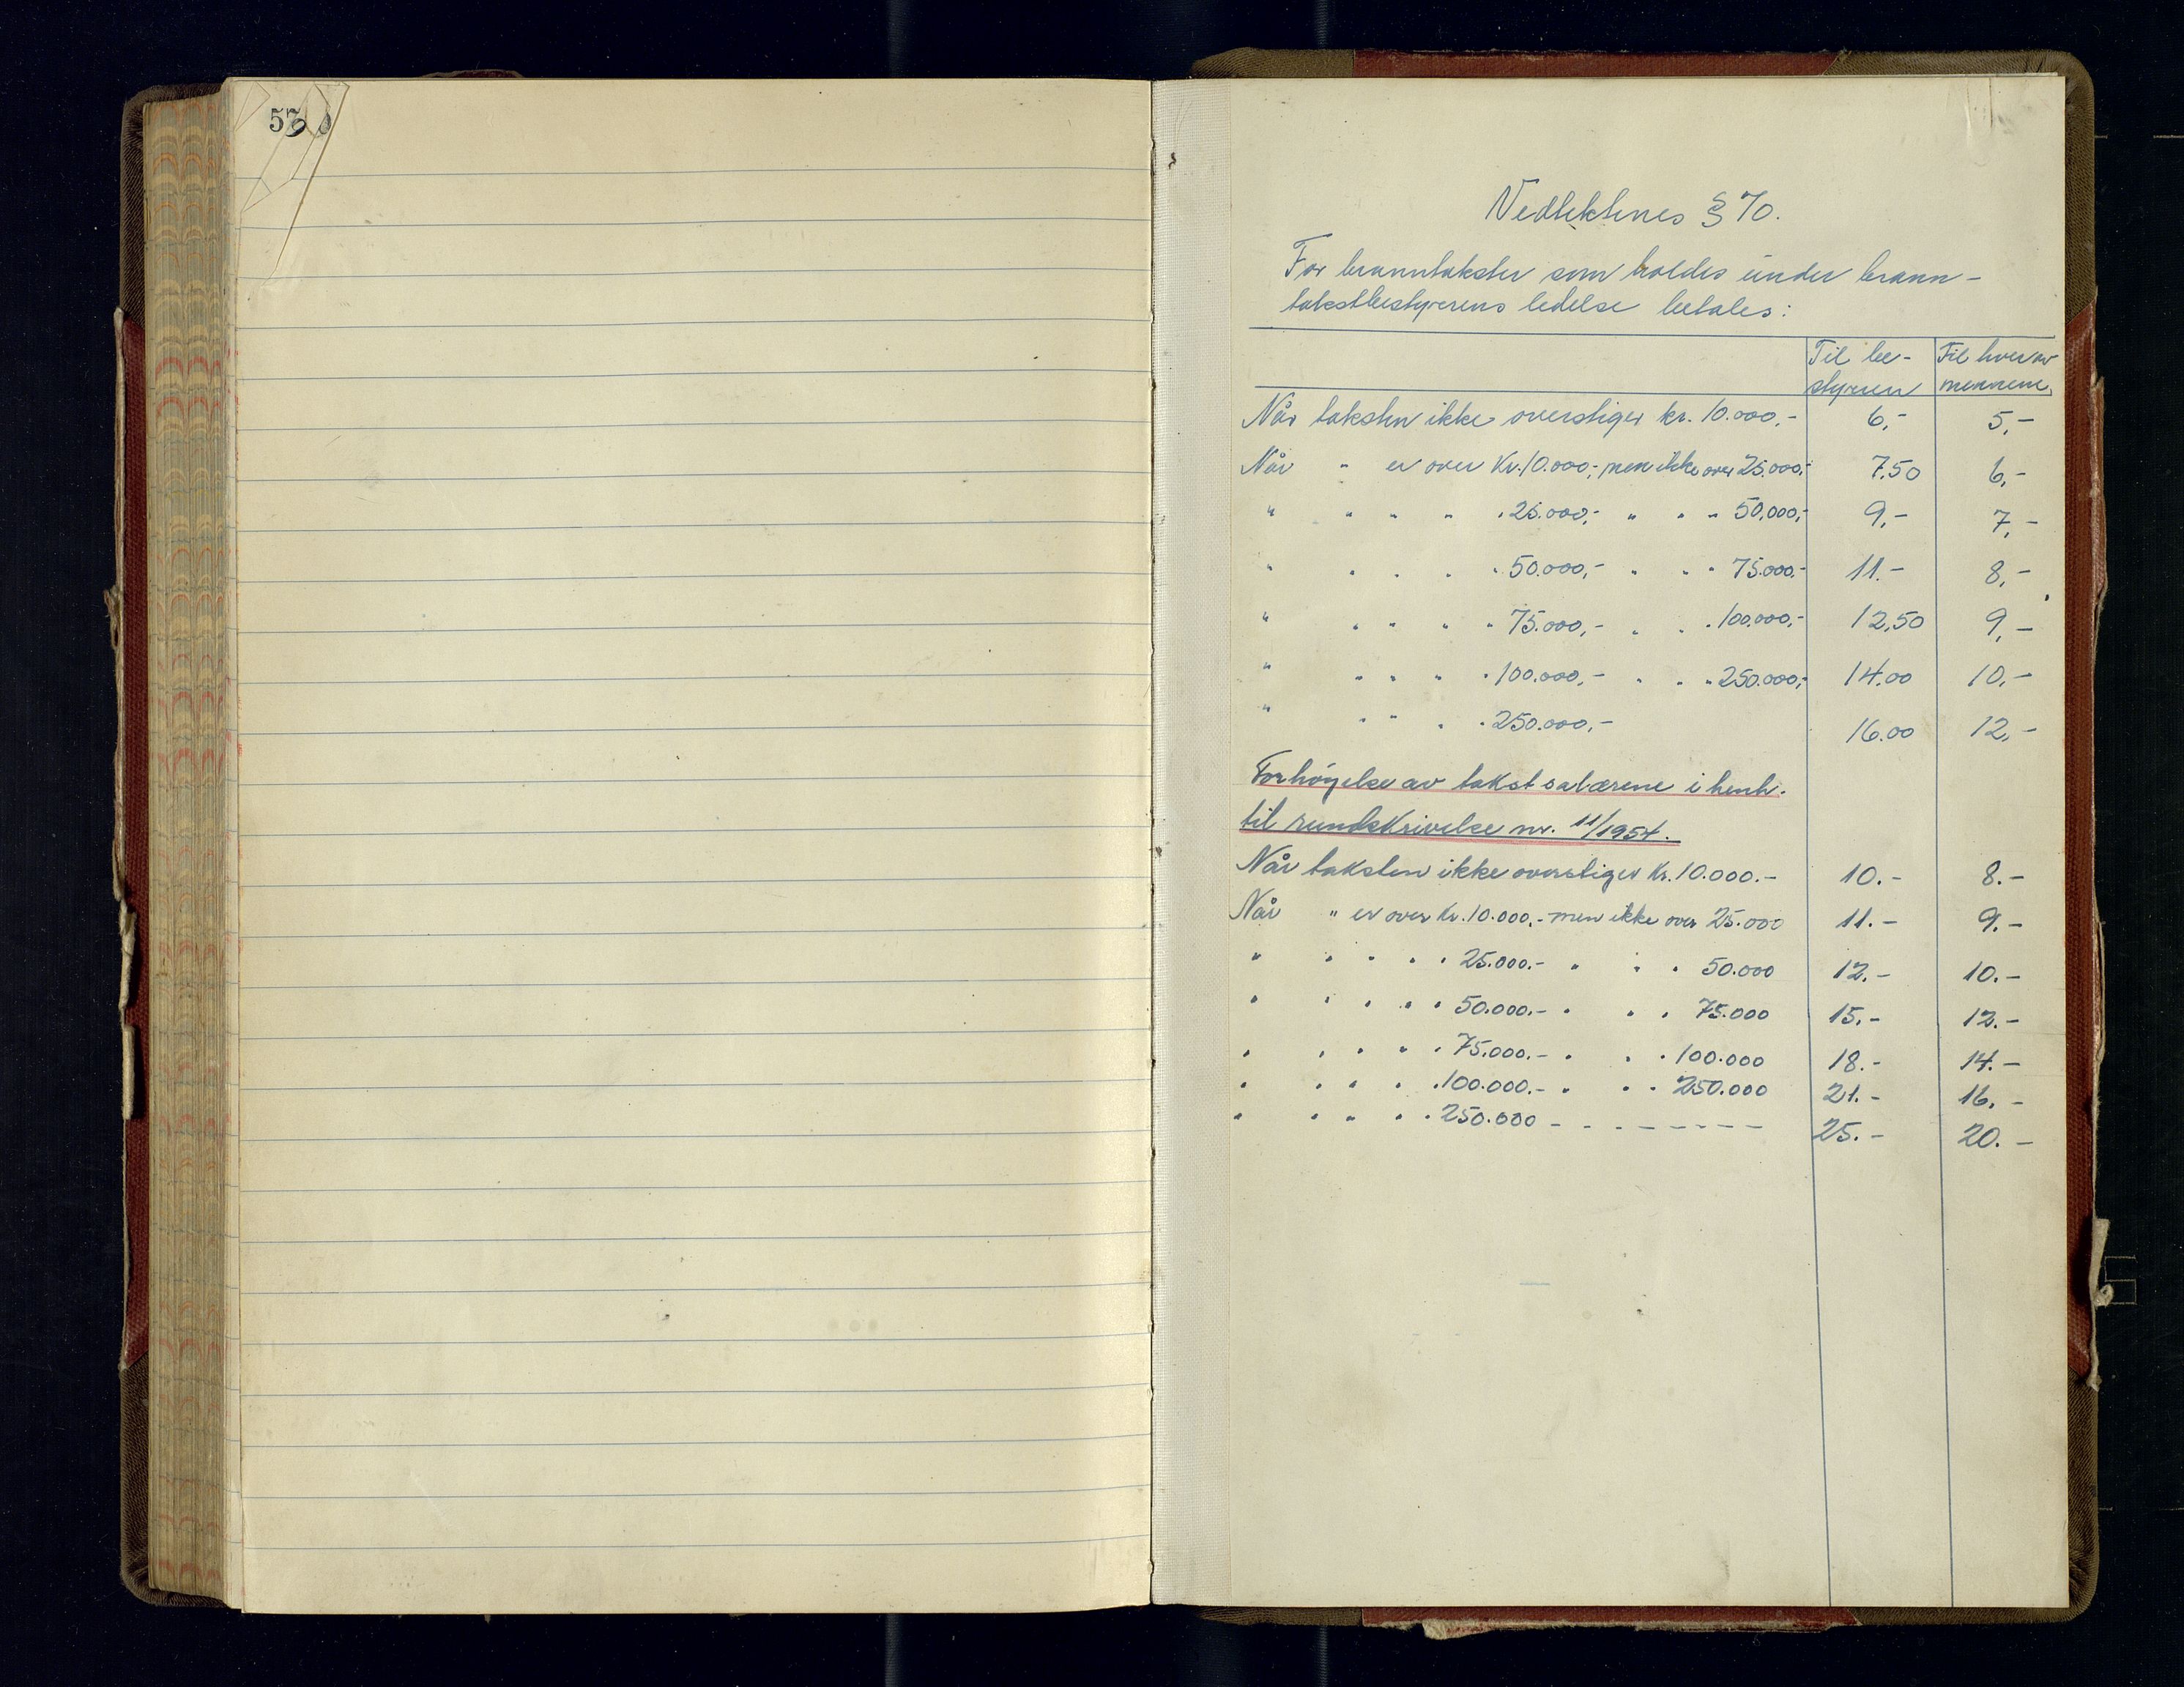 Vedtektenes § 70.
For branntakster som holdes under brann-
takstbestyrerens ledelse betales:
Til be- Til hver av
styreren mennene
Når taksten ikke overstiger kr. 10.000,- 6,- 5,-
Når " er over Kr. 10.000,- men ikke over 25.000,- 7,50 6,-
" " " " " 25.000,- " " " 50,000,- 9,- 7,-
" " " " " 50.000,- " " " 75.000,- 11.- 8,-
" " " " " 75.000,- " " " 100.000,- 12,50 9,-
" " " " " 100.000,- " " " 250.000,- 14.00 10,-
" " " " " 250.000,- 16.00 12,-
Forhöyelse av takstsalærene i henh.
til rundskrivelse nr. 11/1954.
Når taksten ikke overstiger Kr. 10.000.- 10.- 8.-
Når " er over Kr. 10.000.- men ikke over 25.000 11.- 9.-
" " " " " 25.000.- " " " 50.000 12.- 10.-
" " " " " 50.000.- " " " 75.000 15.- 12.-
" " " " " 75.000.- " " " 100.000 18.- 14.-
" " " " " 100.000.- " " " 250.000 21.- 16.-
" " " " " 250.000 - - - - - - - - 25.- 20.-